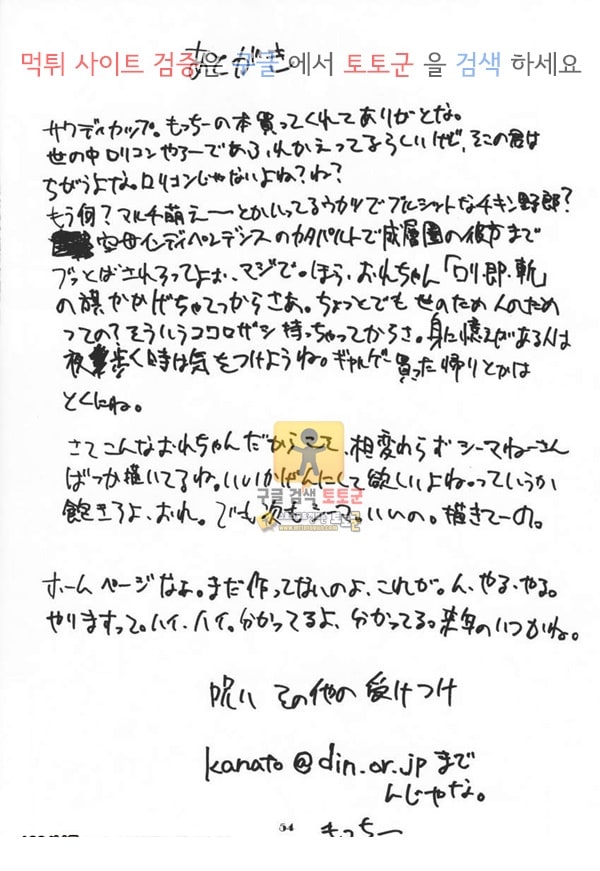 あとがき
먹튀 사이트 검증은 구글 에서 토토군 을 검색 하세요
サウディカップ。もっちーの本買ってくれてありがとな。
世の中ロリコンやろーであふれかえってるらしいけど、そこの君は
ちがうよな。ロリコンじゃないよね?ね?
もう何?マルチ萌えーとかいってるウカツでブルシットなチキン野郎?
空母インディペンデンスのカタパルトで成層圏の彼方まで
ブッとばされろってよぉ、マジで。ほら、おれちゃん「ロリ即斬」
の旗かかげちゃてっからさあ。ちょっとでも世のため人のため
つての?そういうココロザシ持っちゃってからさ。身に憶えがある人は
夜歩く時は気をつけようね。ギャルゲー買った帰りとかは
とくにね。
さてこんなおれちゃんだからこそ、相変わらずシーマねーさん
ばっか描いてるね。いいかげんにして欲しいよね。っていうか
飽きろよ、おれ。でも次もシーマ。いいの。描きてーの。
구글 검색 토토군
ホームページなよ。まだ作ってないのよ、これが。ん、やる、やる。
やりますって。ハイ、ハイ。分かってるよ、分かってるっ来年のいつかね。
呪い その他の受けつけ
kanato@din.or.jpまで
んじゃな。
54
もっちー